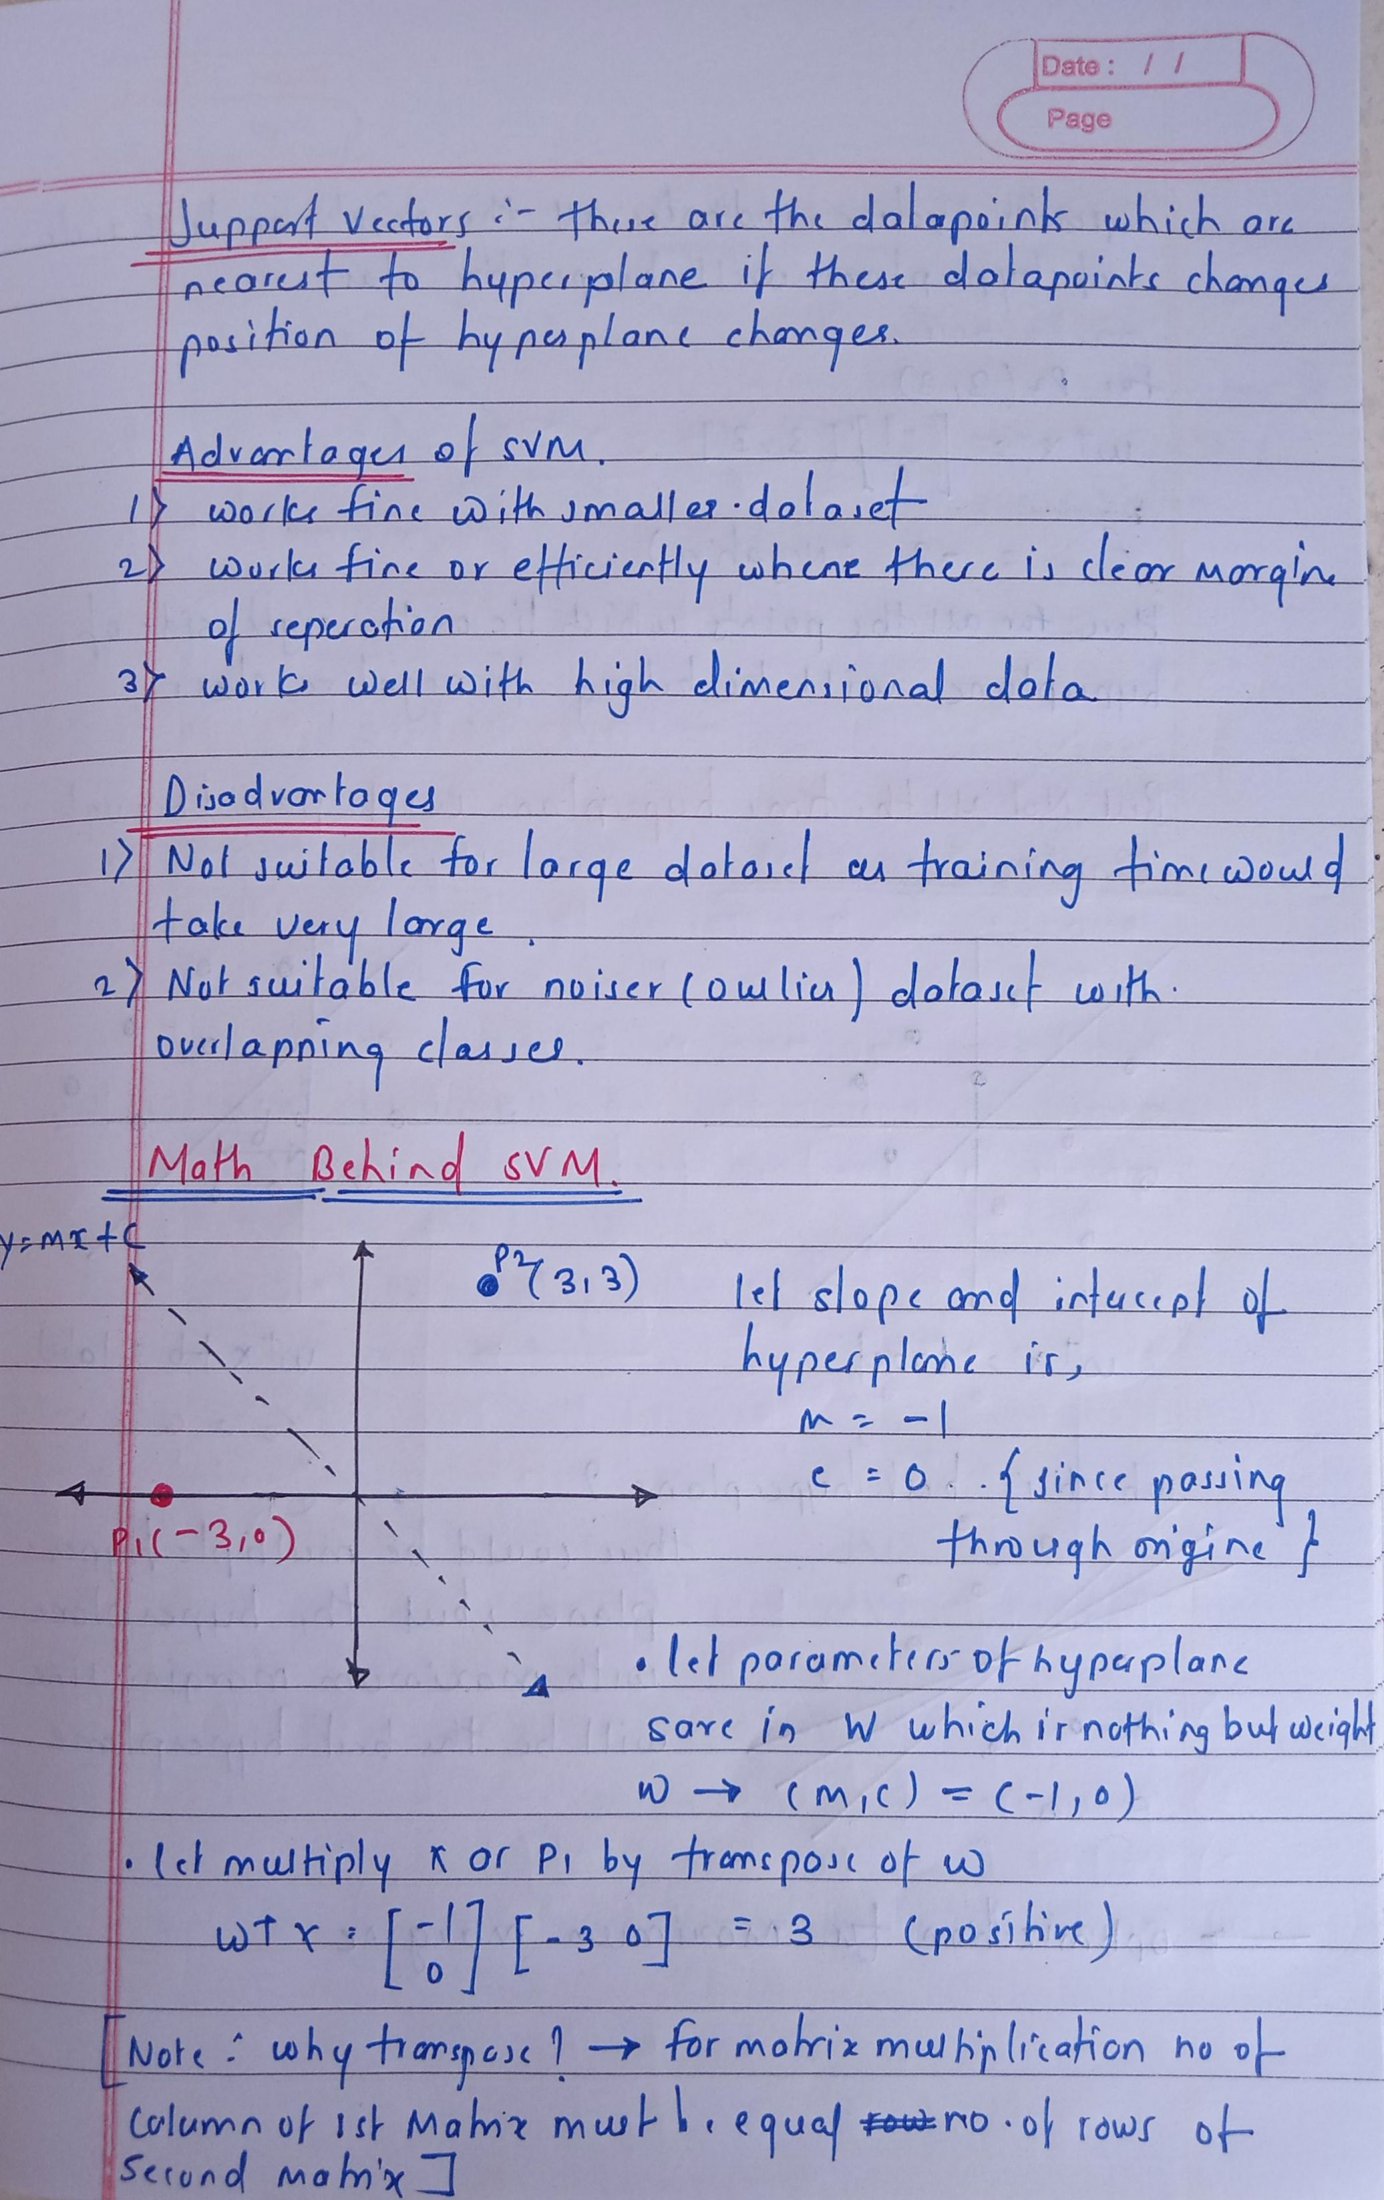 Date : / /
Page
Support Vectors :- these are the datapoints which are
nearest to hyperplane if these datapoints changes
position of hyperplane changes.
Advantages of SVM.
1) works fine with smaller dataset
2) works fine or efficiently whene there is clear margin
of seperation
3) works well with high dimensional data
Disadvantages
1) Not suitable for large dataset as training time would
take very large.
2) Not suitable for noiser (outlier) dataset with
overlapping classes.
Math Behind SVM.
y=mx+c
P2(3,3)
let slope and intercept of
hyperplane is,
m = -1
c = 0 .. {since passing
through origine}
P1(-3,0)
• let parameters of hyperplane
save in W which is nothing but weight
w → (m,c) = (-1,0)
• let multiply x or P1 by transpose of w
wTx = [-1 0] [-3 0] = 3 (positive)
[Note : why transpose? → for matrix multiplication no of
column of 1st Matrix must be equal row no. of rows of
second matrix]